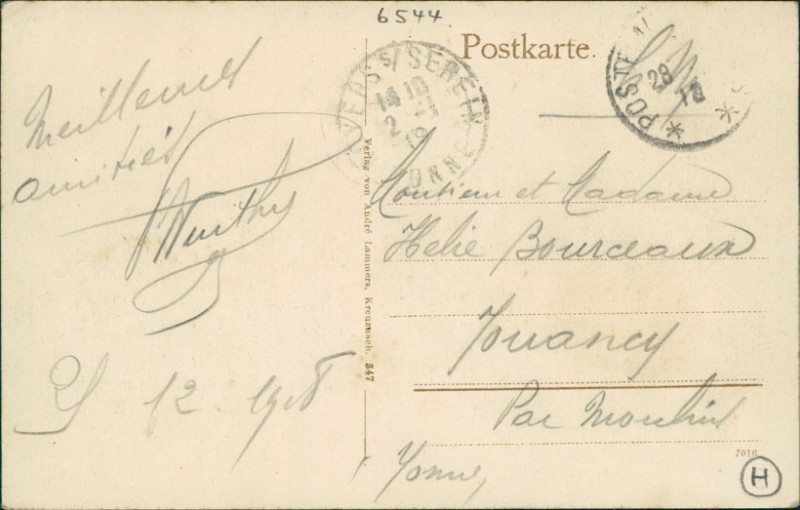 6544
Postkarte.
Meilleures
amitiés
12 1918
Verlag von André Lammers, Kreuznach. 347
S/SEREIN
14 10
2
19
YONNE
* POSTE
28
18
*
Monsieur et Madame
Helie Bourceaux
Jouancy
Par Moulins
Yonne
7016
H